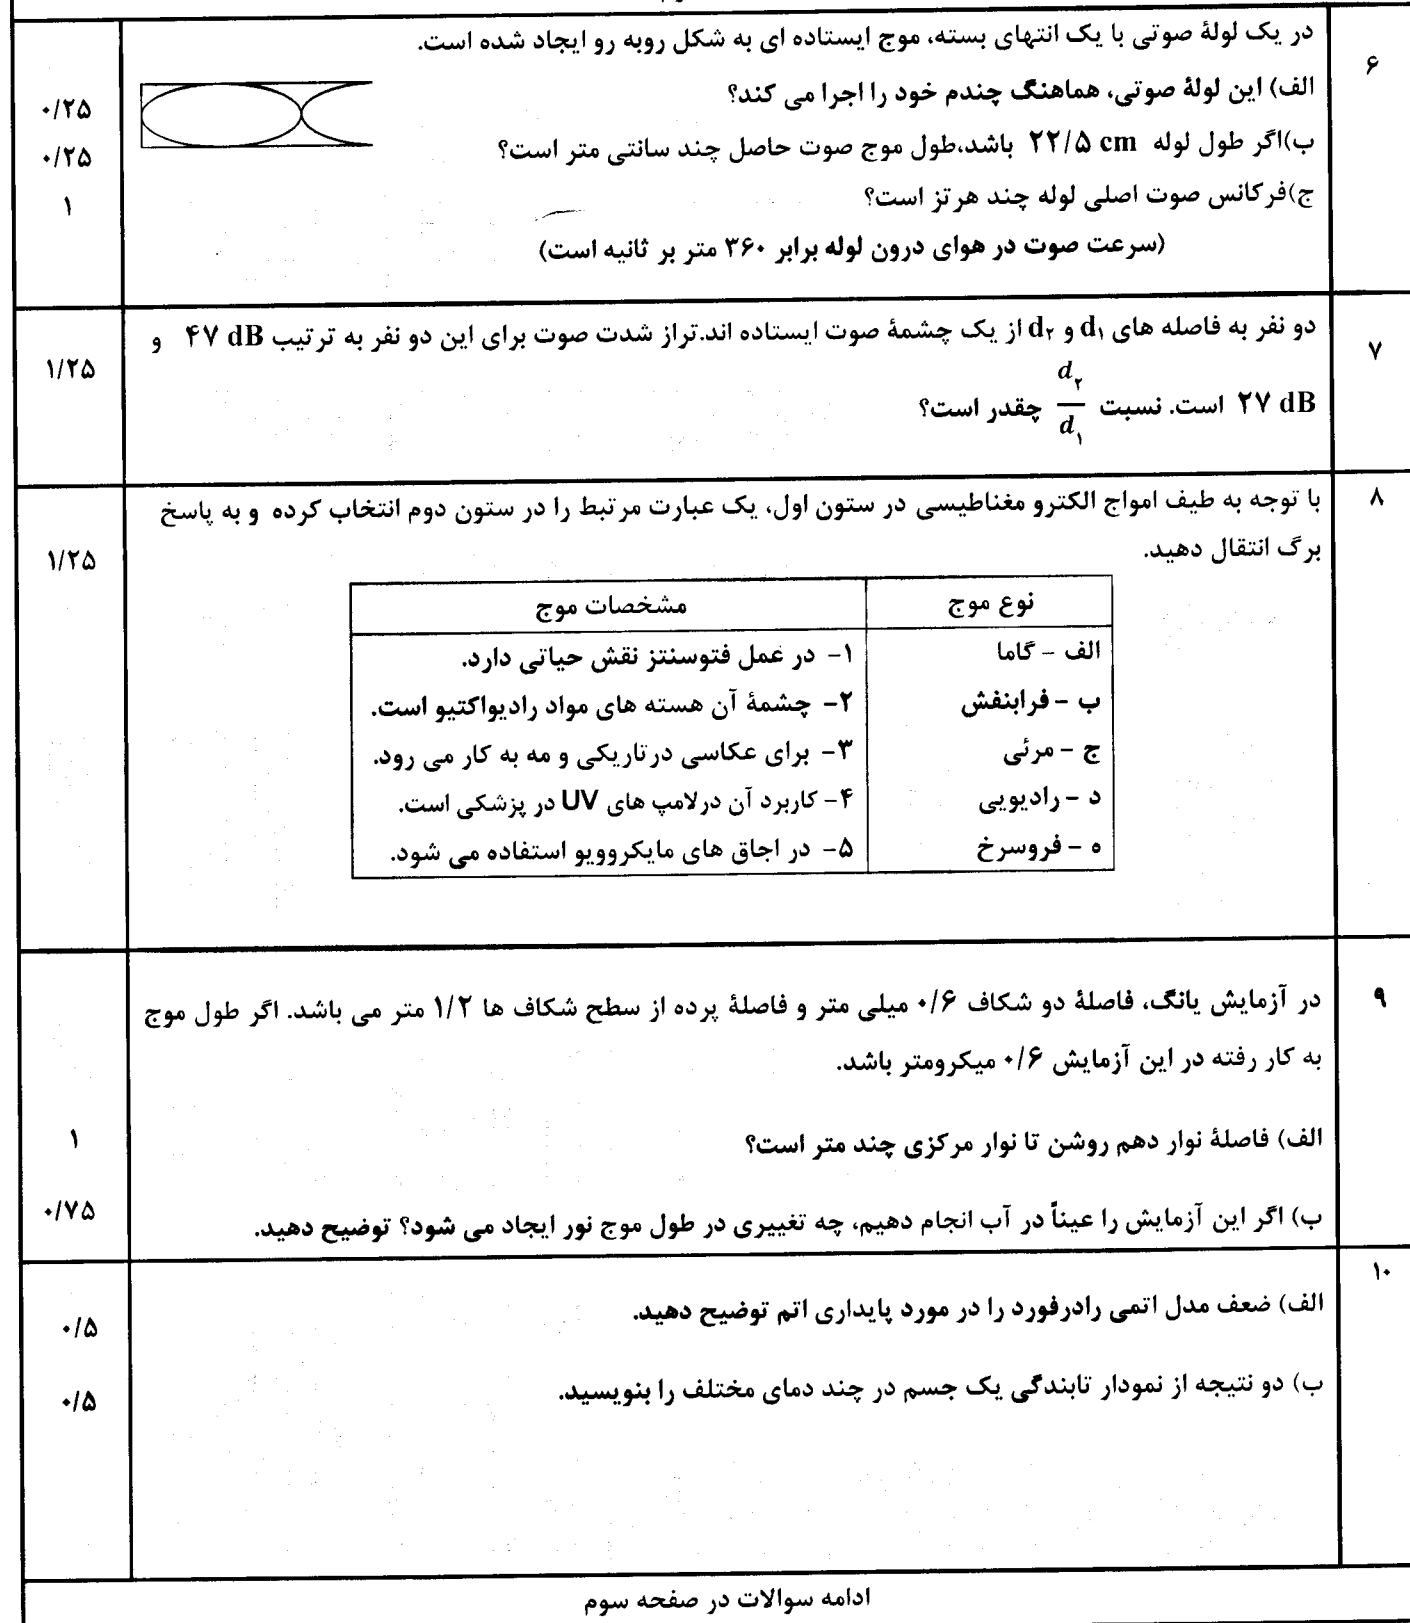 ۶
در یک لولهٔ صوتی با یک انتهای بسته، موج ایستاده ای به شکل روبه رو ایجاد شده است.
الف) این لولهٔ صوتی، هماهنگ چندم خود را اجرا می کند؟
۰/۲۵
ب)اگر طول لوله ۲۲/۵ cm باشد،طول موج صوت حاصل چند سانتی متر است؟
۰/۲۵
ج)فرکانس صوت اصلی لوله چند هرتز است؟
۱
(سرعت صوت در هوای درون لوله برابر ۳۶۰ متر بر ثانیه است)
۷
دو نفر به فاصله های d₁ و d₂ از یک چشمهٔ صوت ایستاده اند.تراز شدت صوت برای این دو نفر به ترتیب ۴۷ dB و
۱/۲۵
۲۷ dB است. نسبت d₂/d₁ چقدر است؟
۸
با توجه به طیف امواج الکترو مغناطیسی در ستون اول، یک عبارت مرتبط را در ستون دوم انتخاب کرده و به پاسخ
برگ انتقال دهید.
۱/۲۵
نوع موج مشخصات موج
الف - گاما ۱- در عمل فتوسنتز نقش حیاتی دارد.
ب - فرابنفش ۲- چشمهٔ آن هسته های مواد رادیواکتیو است.
ج - مرئی ۳- برای عکاسی درتاریکی و مه به کار می رود.
د - رادیویی ۴- کاربرد آن درلامپ های UV در پزشکی است.
ه - فروسرخ ۵- در اجاق های مایکروویو استفاده می شود.
۹
در آزمایش یانگ، فاصلهٔ دو شکاف ۰/۶ میلی متر و فاصلهٔ پرده از سطح شکاف ها ۱/۲ متر می باشد. اگر طول موج
به کار رفته در این آزمایش ۰/۶ میکرومتر باشد.
الف) فاصلهٔ نوار دهم روشن تا نوار مرکزی چند متر است؟
۱
ب) اگر این آزمایش را عیناً در آب انجام دهیم، چه تغییری در طول موج نور ایجاد می شود؟ توضیح دهید.
۰/۷۵
۱۰
الف) ضعف مدل اتمی رادرفورد را در مورد پایداری اتم توضیح دهید.
۰/۵
ب) دو نتیجه از نمودار تابندگی یک جسم در چند دمای مختلف را بنویسید.
۰/۵
ادامه سوالات در صفحه سوم